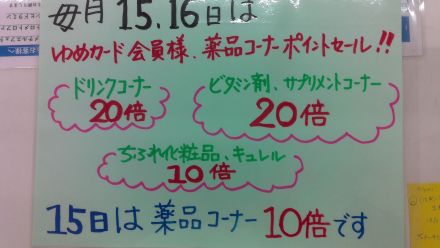 毎月 15.16日は
ゆめカード会員様、薬品コーナーポイントセール!!
ドリンクコーナー
20倍
ビタミン剤、サプリメントコーナー
20倍
ちふれ化粧品、キュレル
10倍
15日は薬品コーナー10倍です